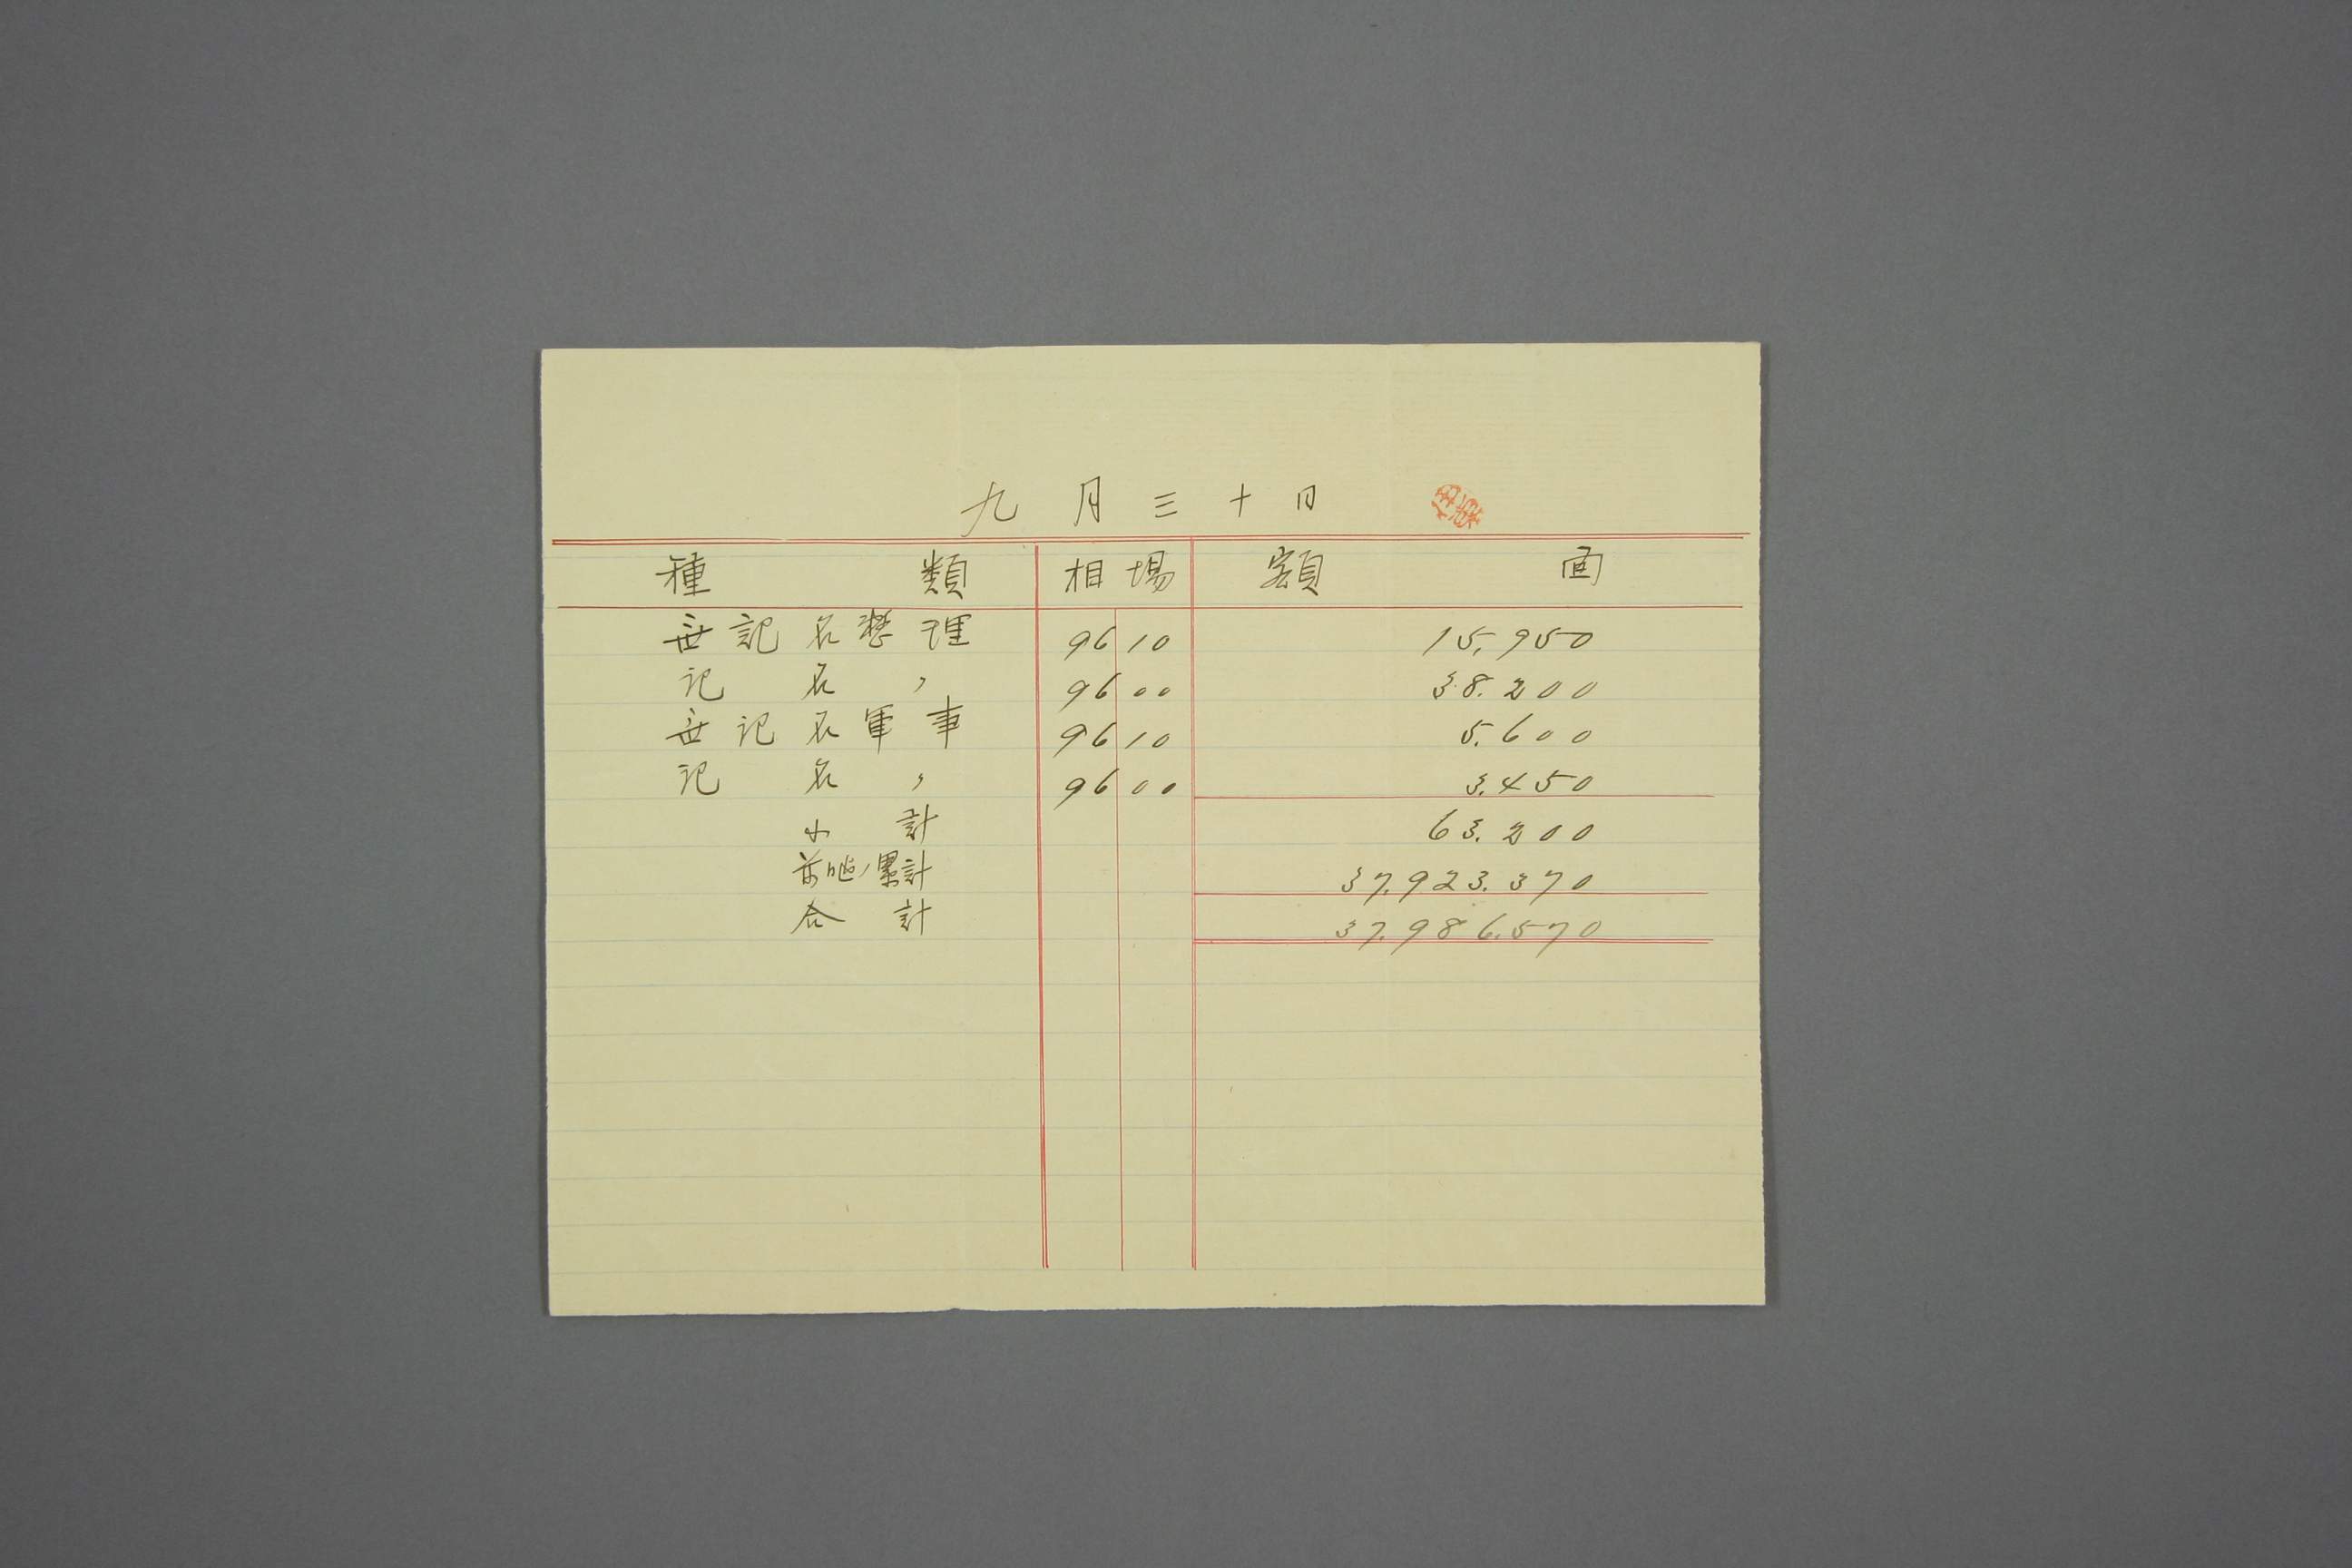 九月三十日
種類 相場 額面
無記名整理 96 10 15,950
記名〃 96 00 38.200
無記名軍事 96 10 5.600
記名〃 96 00 3.450
小計 63.200
前回迄ノ累計 37.923.370
合計 37.986.570